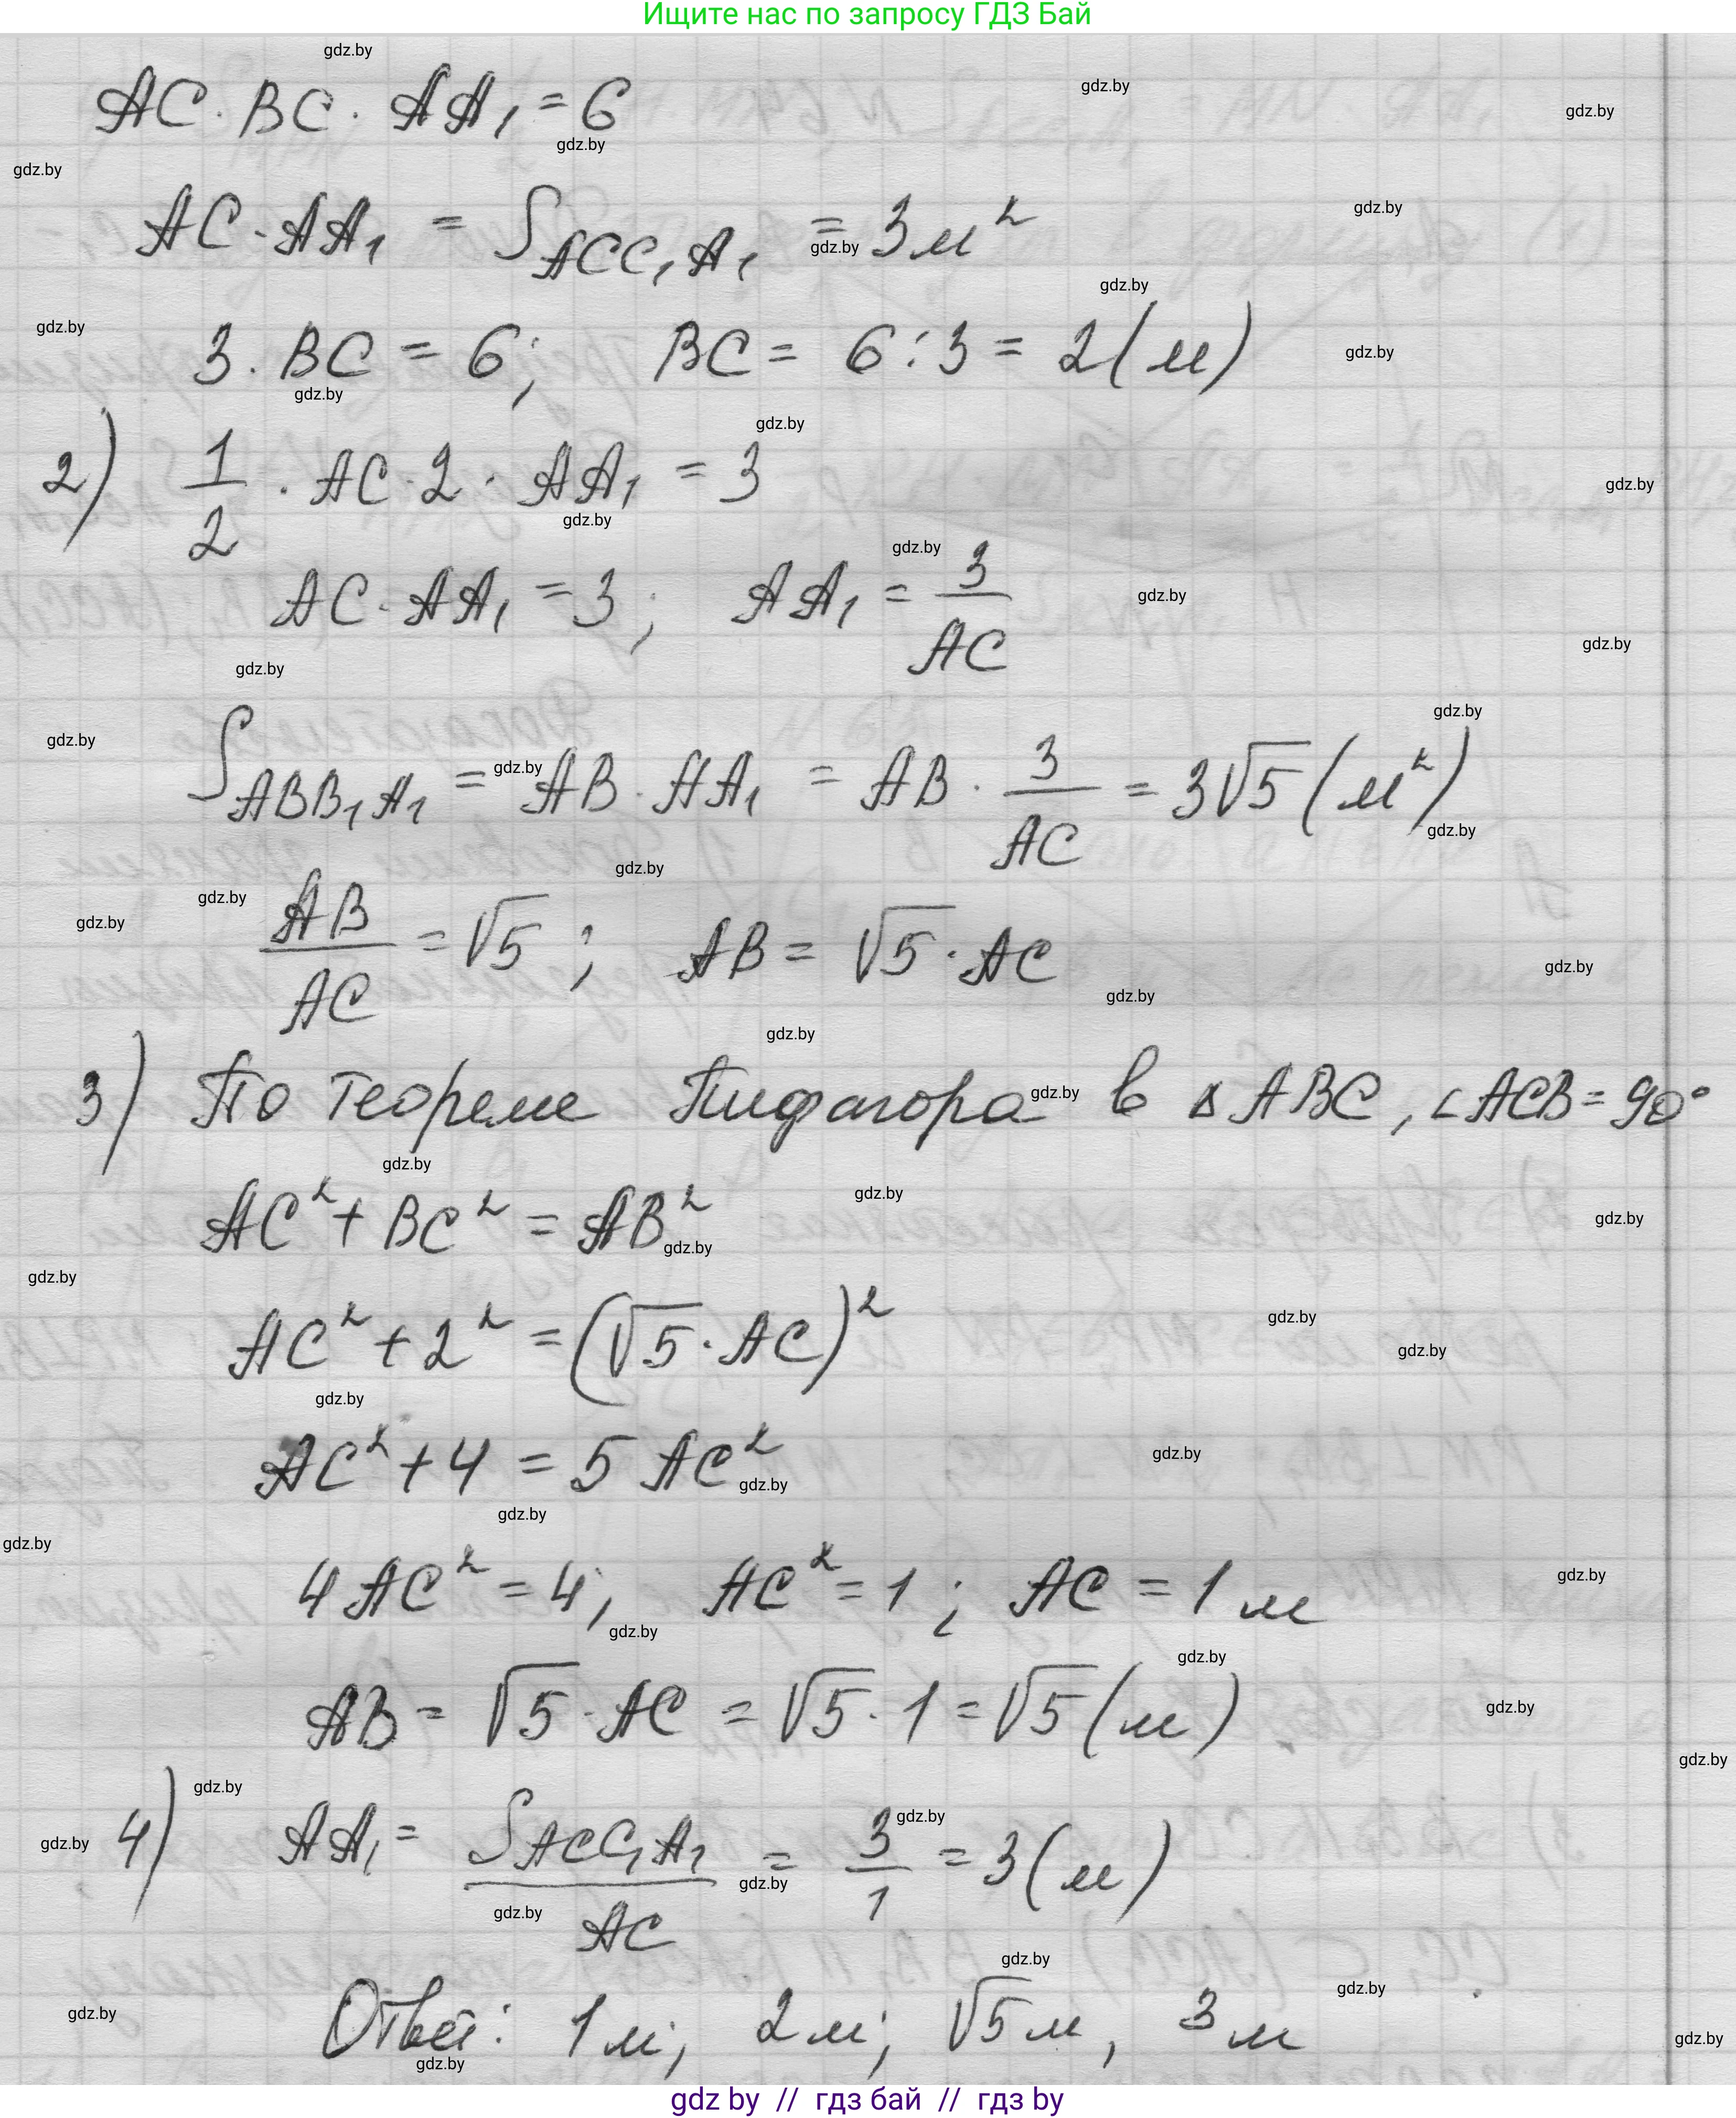 Ищите нас по запросу ГДЗ Бай
AC · BC · AA₁ = 6
AC · AA₁ = S_ACC₁A₁ = 3 м²
3 · BC = 6; BC = 6 : 3 = 2 (м)
2) 1/2 · AC · 2 · AA₁ = 3
AC · AA₁ = 3; AA₁ = 3/AC
S_ABB₁A₁ = AB · AA₁ = AB · 3/AC = 3√5 (м²)
AB/AC = √5; AB = √5 · AC
3) По теореме Пифагора в △ABC, ∠ACB = 90°
AC² + BC² = AB²
AC² + 2² = (√5 · AC)²
AC² + 4 = 5 AC²
4 AC² = 4, AC² = 1; AC = 1 м
AB = √5 · AC = √5 · 1 = √5 (м).
4) AA₁ = S_ACC₁A₁/AC = 3/1 = 3 (м)
Ответ: 1 м; 2 м; √5 м, 3 м
gdz by // гдз бай // гдз by